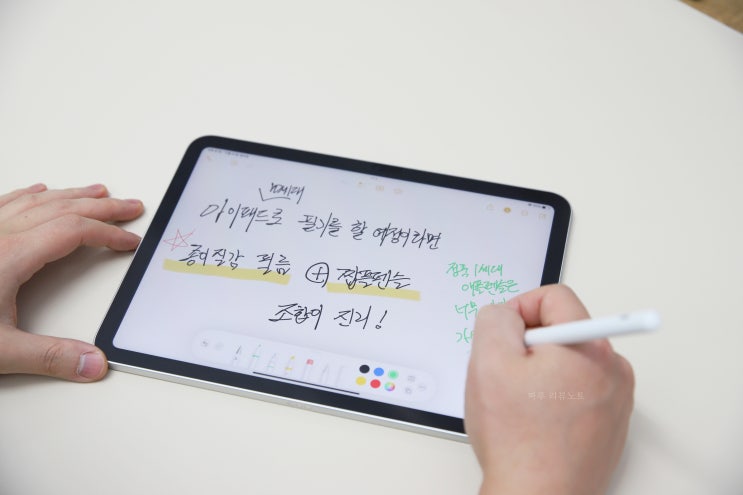 10세대
아이패드로 필기를 할 예정이라면
종이질감 필름 + 짭플펜슬
조합이 진리!
정품 1세대
애플펜슬은
너무
리뷰노트